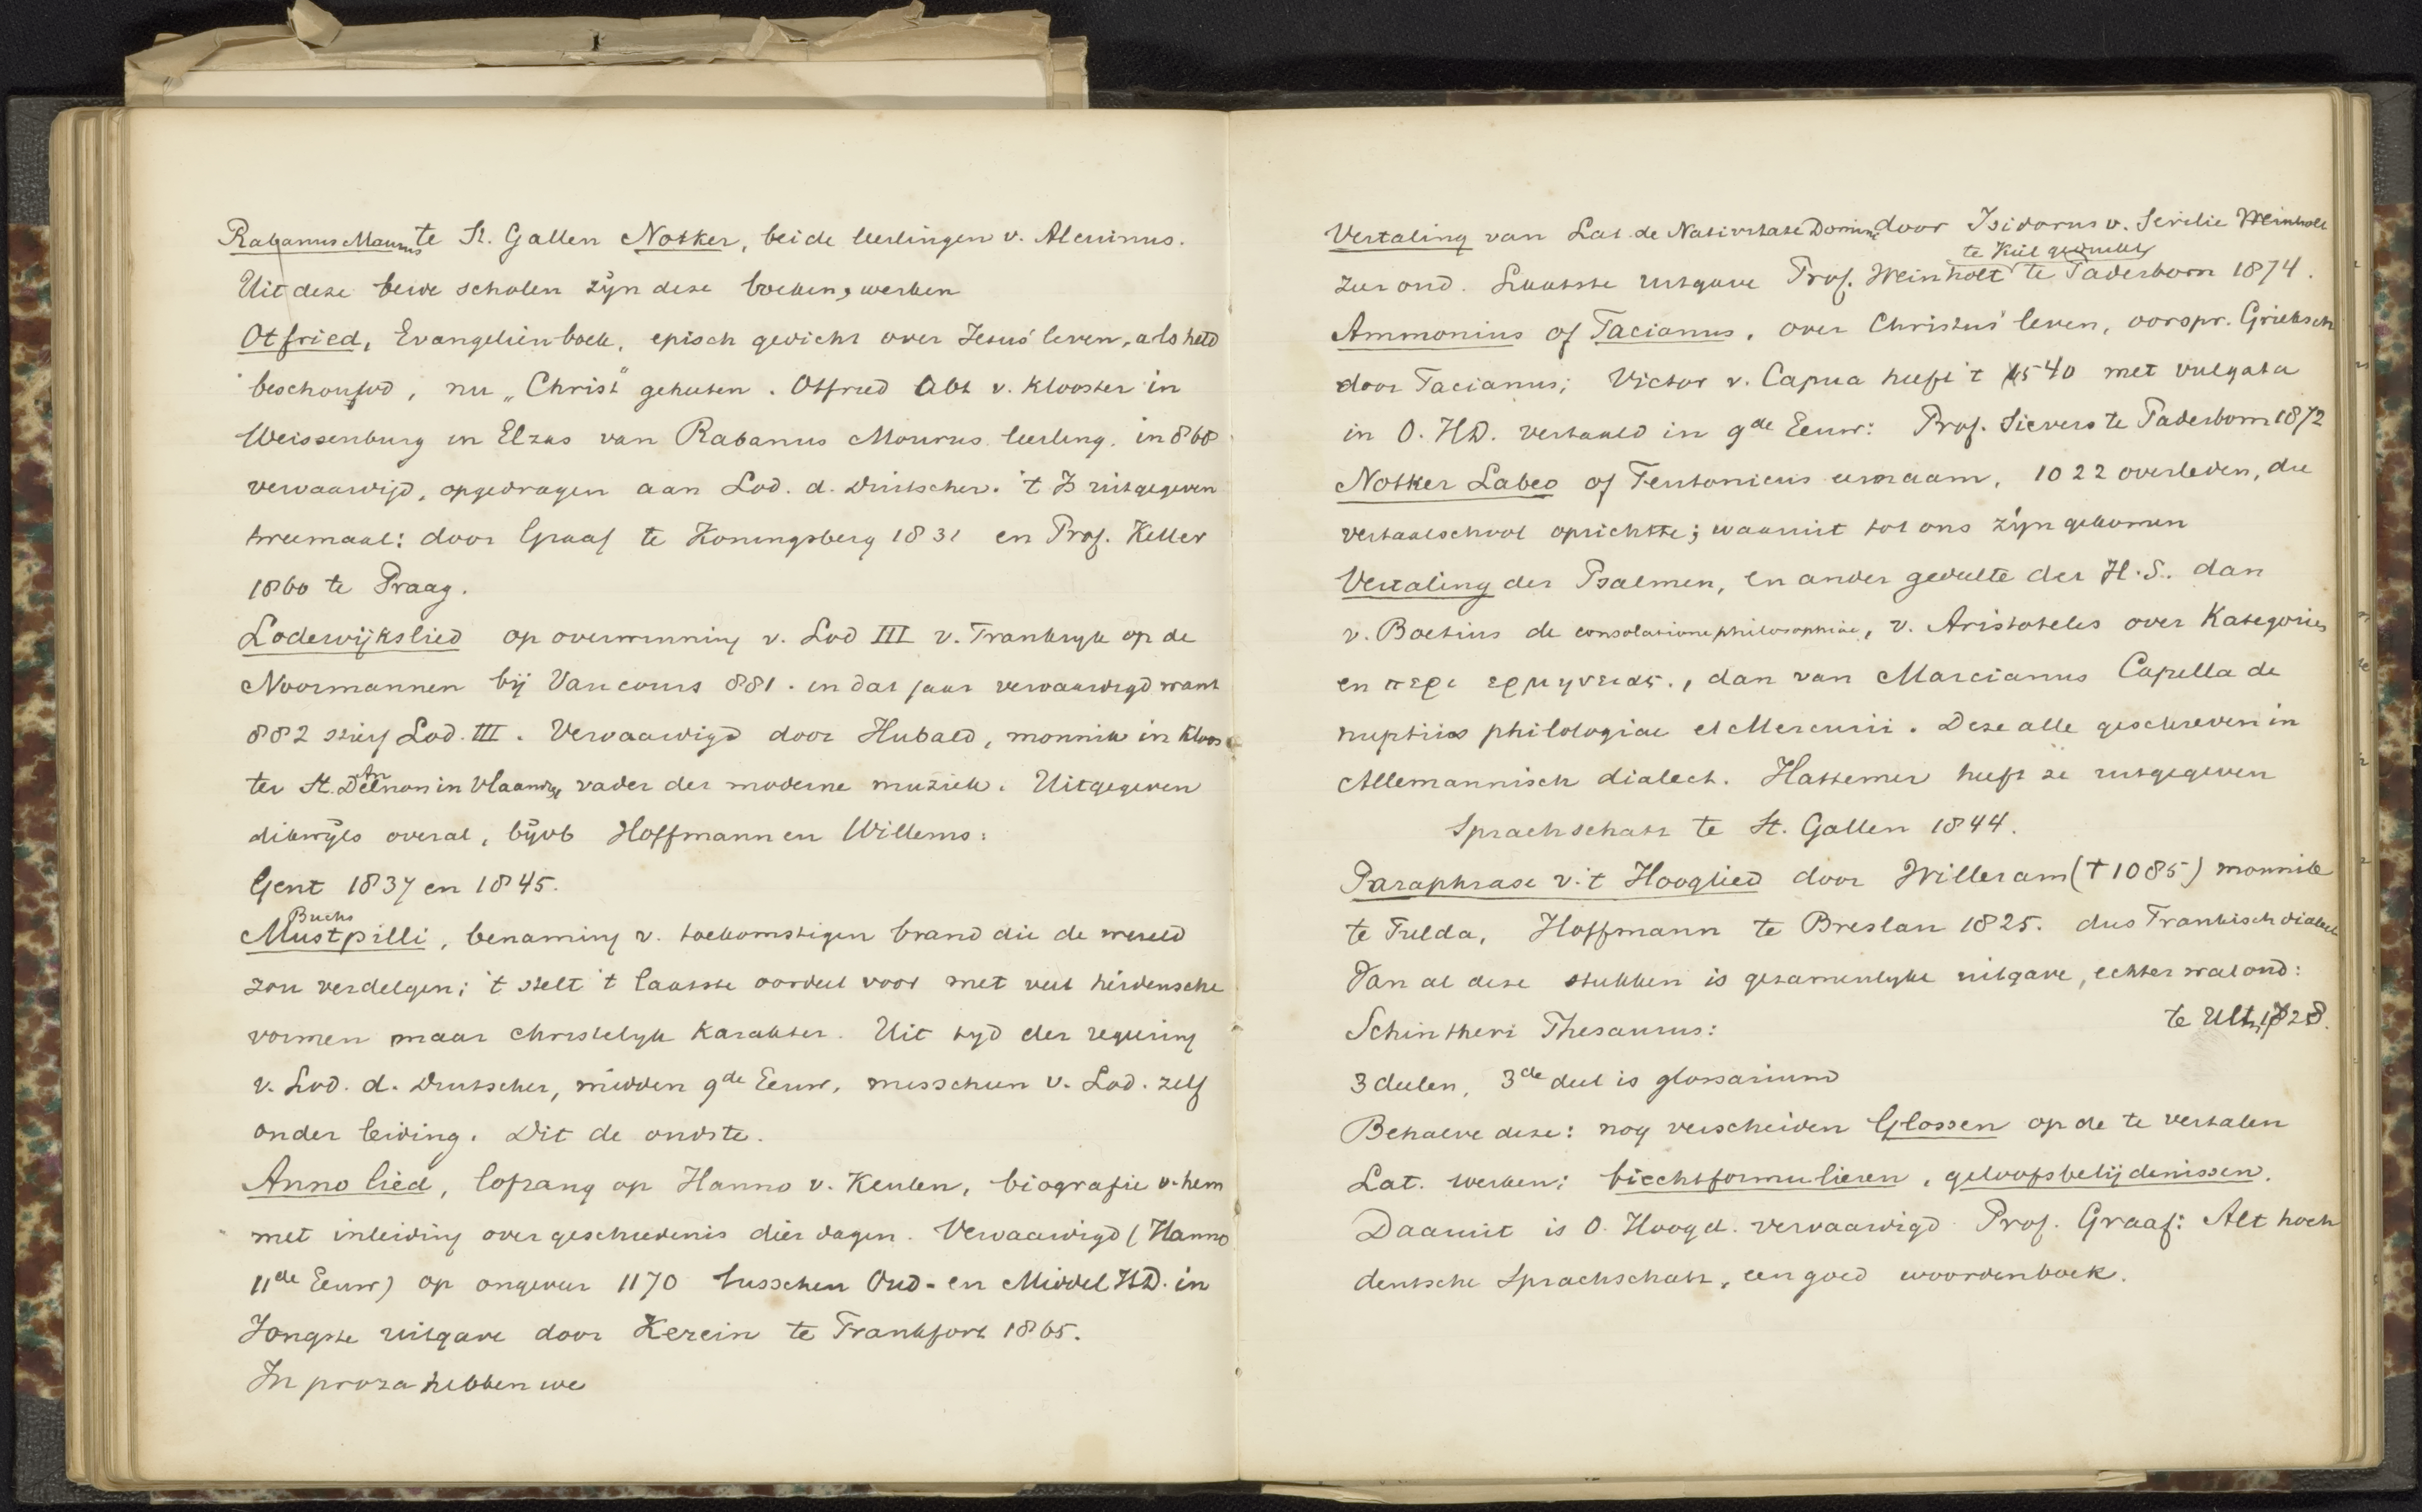 Rabanus Maurus te St. Gallen Notker, beide leerlingen v. Alcuinus.
Uit deze beide scholen zijn deze boeken, werken
Otfried, Evangeliënboek, episch gedicht over Jesus' leven, als held
beschouwd, nu „Christ" geheeten. Otfried Abt v. Klooster in
Weissenburg in Elzas van Rabanus Maurus leerling. in 868
vervaardigd, opgedragen aan Lod. d. Duitscher. 't Is uitgegeven
tweemaal: door Graaf te Koningsberg 1831 en Prof. Keller
1860 te Praag.
Lodewijkslied op overwinning v. Lod III v. Frankryk op de
Noormannen bij Vaucours 881. in dat jaar vervaardigd want
882 stierf Lod. III. Vervaardigd door Hubald, monnik in kloos
ter St. in Vlaand, vader der moderne muziek. Uitgegeven
dikwijls overal, bijvb Hoffmann en Willems:
Gent 1837 en 1845.
Buchs
Mustpilli, benaming v. toekomstigen brand die de wereld
zou verdelgen; 't stelt 't laatste oordeel voor met veel heidensche
vormen maar christelyk karakter. Uit tyd der regeering
v. Lod. d. Duitscher, midden 9de Eeuw, misschien v. Lod. zelf
onder leiding. Dit de oudste.
Anno lied, lofzang op Hanno v. Keulen, biografie v. hem
met inleiding over geschiedenis dier dagen. Vervaardigd (Hanno
11de Eeuw) op ongeveer 1170 tusschen Oud- en Middel HD. in
Jongste uitgave door Kerein te Frankfort 1865.
In proza hebben we
Vertaling van Lat. de Nativitate Domini door Isidorus v. Sevilie Weinholt
te Kiel gedrukt
zeer oud. Laatste uitgave Prof. Weinholt te Paderborn 1874.
Ammonius of Tacianus, over Christus' leven, oorspr. Grieksch
door Tacianus; Victor v. Capua heeft 't 540 met vulgata
in O. HD. vertaald in 9de Eeuw: Prof. Sievers te Paderborn 1872
Notker Labeo of Teutonicus eernaam, 1022 overleden, die
vertaalschool oprichtte; waaruit tot ons zijn gekomen
Vertaling der Psalmen, en ander gedeelte der H.S. dan
v. Boetius de consolatione philosophiae, v. Aristoteles over Kategories
en περι ερμηνειας., dan van Marcianus Capella de
nuptiis philologiae et Mercurii. Deze alle geschreven in
Allemannisch dialect. Hattemer heeft ze uitgegeven
Sprachschatz te St. Gallen 1844.
Paraphrase v. 't Hooglied door Willeram († 1085) monnik
te Fulda, Hoffmann te Breslau 1825. dus Frankisch dialect
Van al deze stukken is gezamenlyke uitgave, echter wat oud:
Schintheri Thesaurus: te Ulm 1728.
3 deelen, 3de deel is glossarium
Behalve deze: nog verscheiden Glossen op de te vertalen
Lat. werken; biechtformulieren, geloofsbelijdenissen.
Daaruit is O. Hoogd. vervaardigd Prof. Graaf: Alt hoch
deutsche Sprachschatz, een goed woordenboek.